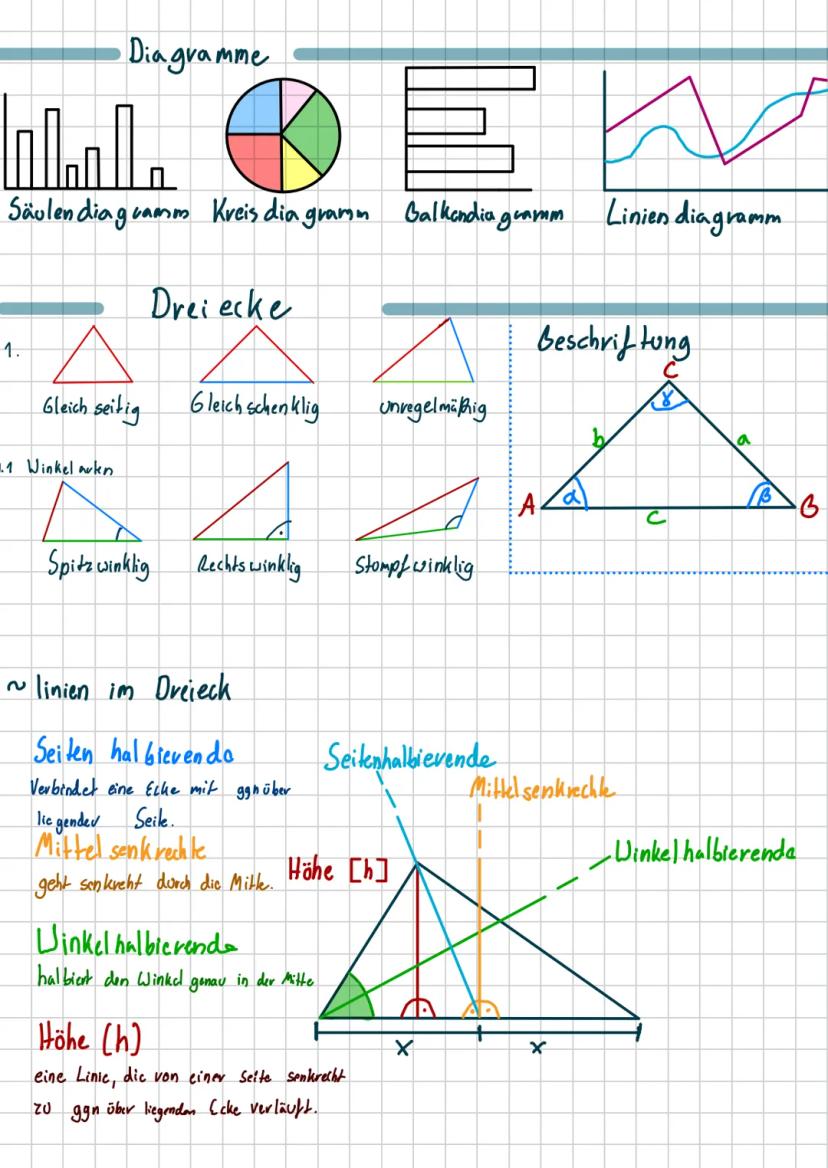 Diagramme
Säulendiagramm Kreisdiagramm Balkendiagramm Liniendiagramm
Dreiecke
1.
Gleichseitig Gleichschenklig unregelmäßig
.1 Winkelarten
Spitzwinklig Rechtswinklig Stumpfwinklig
Beschriftung
C
γ
b a
A α β B
c
~linien im Dreieck
Seitenhalbierende
Verbindet eine Ecke mit ggnüber
liegender Seite.
Mittelsenkrechte
geht senkreht durch die Mitte.
Winkelhalbierende
halbiert den Winkel genau in der Mitte
Höhe [h]
eine Linie, die von einer Seite senkrecht
zu ggnüberliegenden Ecke verläuft.
Seitenhalbierende
Mittelsenkrechte
Winkelhalbierende
Höhe [h]
x x